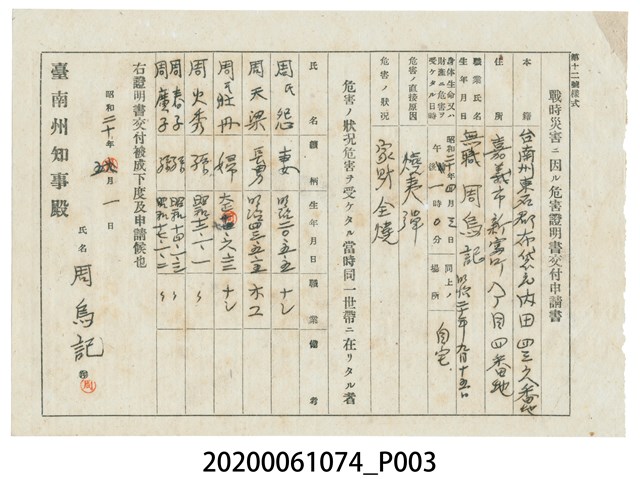 第十二號樣式
戰時災害ニ因ル危害證明書交付申請書
本籍 台南州東石郡布袋庄内田四三八番地
住所 嘉義市新富町八丁目四番地
職業氏名生年月日 無職 周烏記 明治二十年九月十五日
身体生命又ハ財産ニ危害ヲ受ケタル日時 昭和二十年四月三日 午後一時〇分 同上ノ場所 自宅
危害ノ直接原因 燒夷彈
危害ノ狀況 家財全燒
危害ノ狀況危害ヲ受ケタル當時同一世帶ニ在リタル者
氏名 續柄 生年月日 職業 備考
周氏怨 妻 明治二〇、五、五 ナシ
周天梁 長男 明治四三、五、五 木工
周氏牡丹 婦 大正 六、三 ナシ
周火秀 孫 昭和十一、八、一 〃
周春子 孫 昭和十四、八、三 〃
周廣子 孫 昭和十七、八、三 〃
右證明書交付被成下度及申請候也
昭和二十年五月一日
氏名 周烏記
臺南州知事殿
20200061074_P003